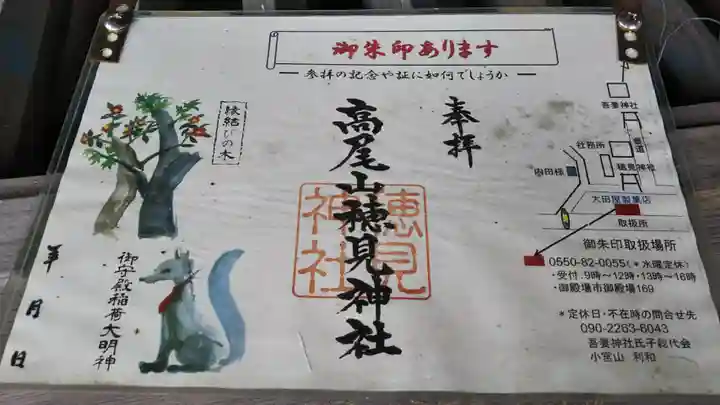 御朱印あります
参拝の記念や証に如何でしょうか
奉拝
高尾山穂見神社
穂見
神社
縁結びの木
御守殿稲荷大明神
年 月 日
吾妻神社
参道
社務所
穂見神社
大田屋製菓店
取扱所
御朱印取扱場所
0550-82-0055(*水曜定休)
・受付.9時～12時・13時～16時
・御殿場市御殿場169
*定休日・不在時の問合せ先
090-2263-6043
吾妻神社氏子総代会
小宮山 利和